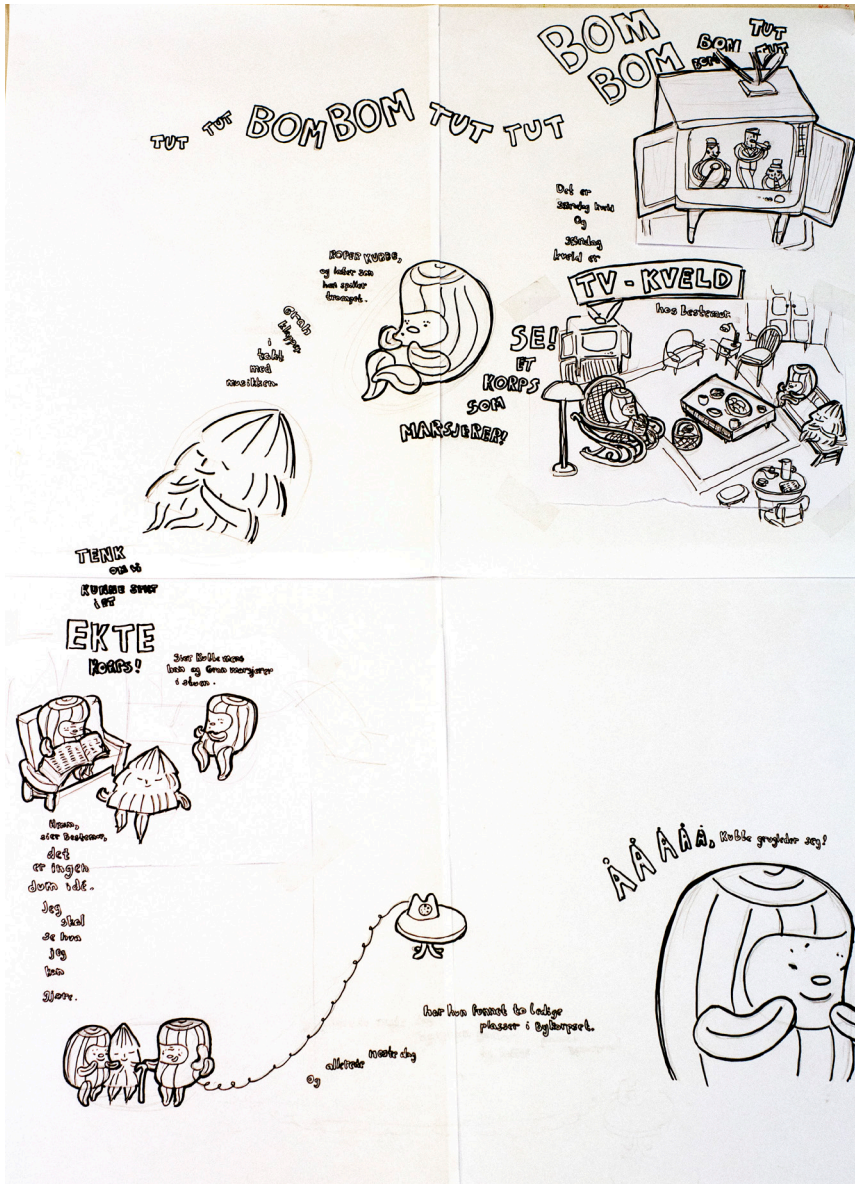 TUT TUT BOM BOM TUT TUT
BOM BOM TUT
BOM BOM TUT
Det er
søndag kveld
Og
søndag
kveld er
TV - KVELD
hos bestemor
SE!
ET
KORPS
SOM
MARSJERER!
ROPER KUBBE,
og later som
han spiller
trompet.
Gran
klapper
i
takt
med
musikken.
TENK
om vi
KUNNE
i ET
EKTE
KORPS!
Sier Kubbe mens
han og Gran marsjerer
i stuen.
Hmm,
sier Bestemor,
det
er ingen
dum idé.
Jeg
skal
se hva
jeg
kan
gjøre.
Og
allerede
neste dag
har hun funnet to ledige
plasser i Bykorpset.
Å Å Å Å Å, Kubbe grugleder seg!